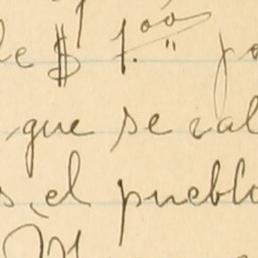 de $ 1.00 
que se val
s, el pueblo